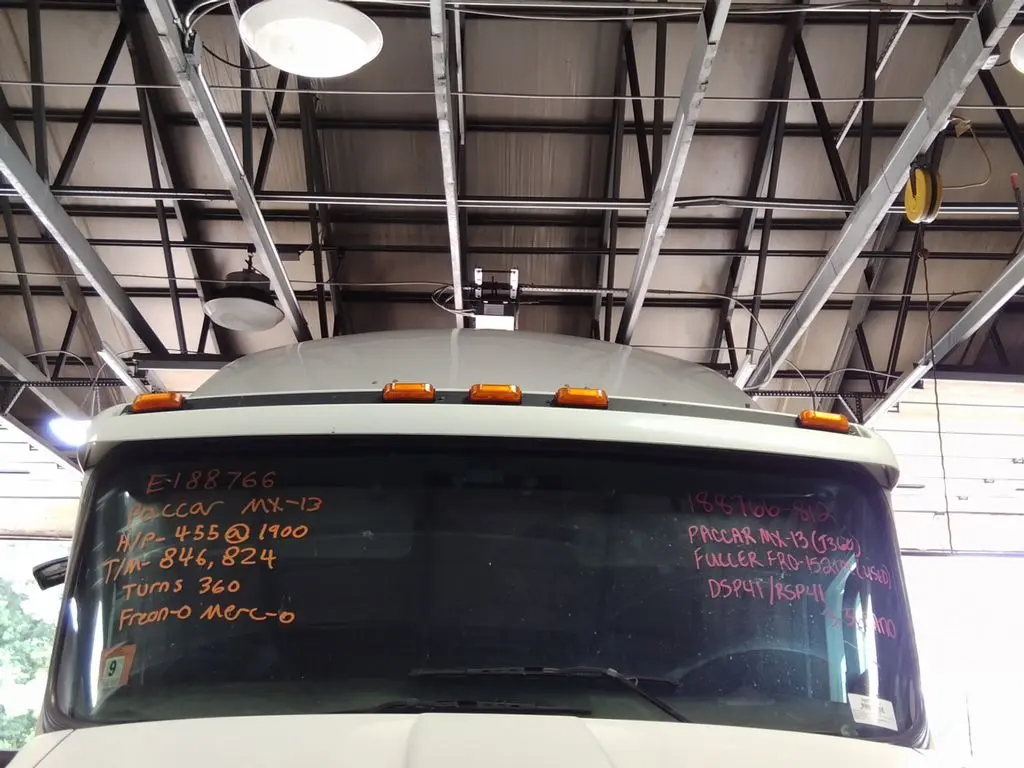 E-188766
Paccar MX-13
H/P- 455 @ 1900
T/M- 846,824
Turns 360
Freon-0 Merc-0
9
188766-812
PACCAR MX-13
FULLER FRO- (USED)
DSP41/RSP41